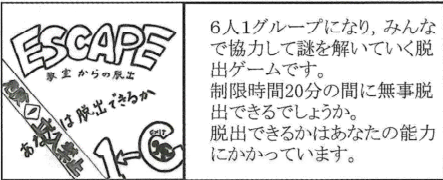 ESCAPE
教室からの脱出
あなたは脱出できるか
1
6
EXIT
6人1グループになり，みんな
で協力して謎を解いていく脱
出ゲームです。
制限時間20分の間に無事脱
出できるでしょうか。
脱出できるかはあなたの能力
にかかっています。